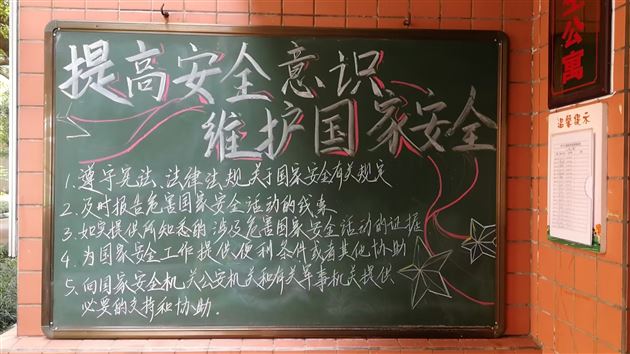 提高安全意识
维护国家安全
1.遵守宪法、法律法规关于国家安全有关规定
2.及时报告危害国家安全活动的线索
3.如实提供所知悉的涉及危害国家安全活动的证据
4.为国家安全工作提供便利条件或有其他协助
5、向国家安全机关公安机关和有关军事机关提供
必要的支持和协助.
公寓
温馨提示